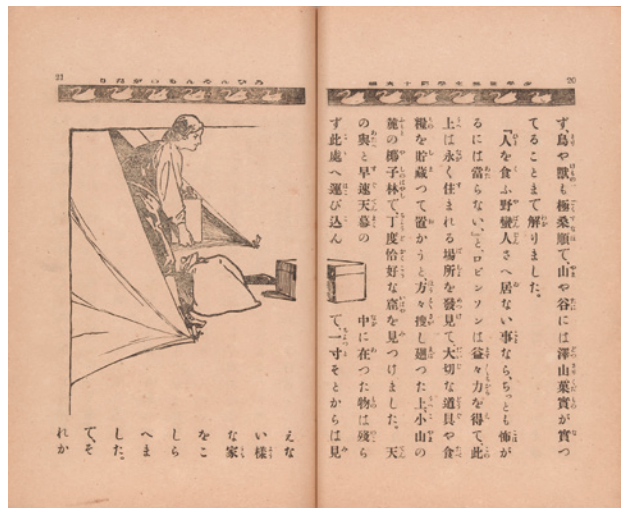 20
ず、鳥や獸も極柔順で、山や谷には澤山菓實が實つ
てることまで解りました。
『人を食ふ野蠻人さへ居ない事なら、ちつとも怖が
るには當らない、』と、ロビンソンは益々力を得て、此
上は永く住まれる場所を發見て、大切な道具や食
糧を貯藏つて置かうと、方々搜し廻つた上、小山の
麓の椰子林で、丁度恰好な窟を見つけました。天
の與と早速天幕の中に在つた物は殘ら
ず此處へ運び込んで、一寸そとからは見
21
えな
い樣
な家
をこ
しら
へま
した。
て、そ
れか